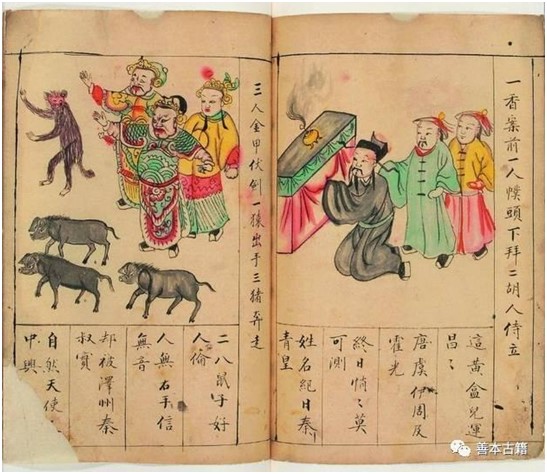 一香案前一人幞頭下拜二胡人侍立
這黃盒兒運
昌〻
唐虞伊周及
霍光
終日悄〻莫
可測
姓名紀日秦
青皇
三人金甲伏劍一猿出手三猪奔走
二八鼠子好
人偷
人無右手信
無音
却被澤州秦
叔寶
自然天使
中興
善本古籍